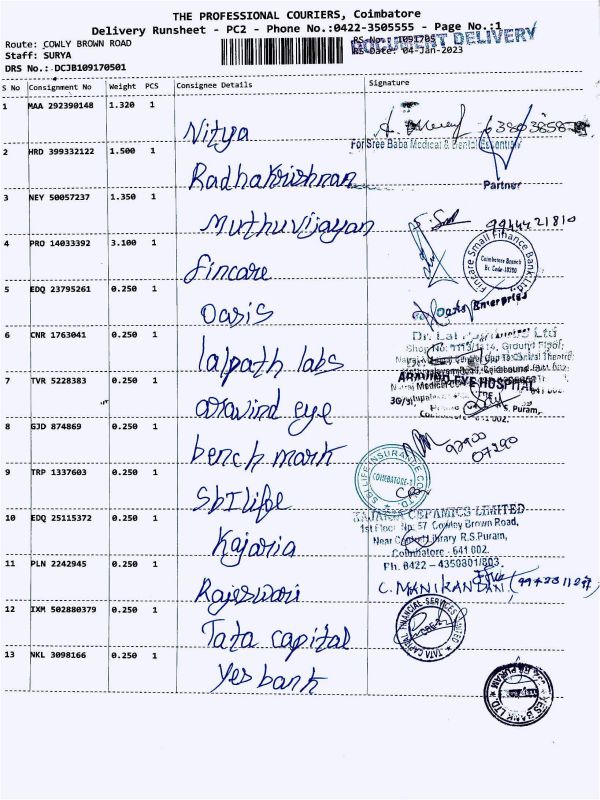 THE PROFESSIONAL COURIERS, Coimbatore
Delivery Runsheet - PC2 - Phone No.:0422-3505555 - Page No.:1
Route: COWLY BROWN ROAD
RS-No.: 1091705
DOCUMENT DELIVERY
Staff: SURYA
RS-Date: 04-Jan-2023
DRS No.: DCJB109170501
S No Consignment No Weight PCS Consignee Details Signature
1 MAA 292390148 1.320 1 Nitya
For Sree Baba Medical & Dental
2 HRD 399332122 1.500 1 Radhakrishnan
Partner
3 NEY 50057237 1.350 1 Muthuvijayan
9944421810
4 PRO 14033392 3.100 1 fincare
Fincare Small Finance Bank Ltd.
Coimbatore Branch
5 EDQ 23795261 0.250 1 Oasis
Enterprises
6 CNR 1763041 0.250 1 lalpath labs
Dr. Lal Ltd
7 TVR 5228383 0.250 1 aravind eye
ARAVIND EYE HOSPITAL
R.S. Puram,
8 GJD 874869 0.250 1 bench mark
92900
07290
9 TRP 1337603 0.250 1 SbI life
SBI LIFE INSURANCE CO
COIMBATORE-1
10 EDQ 25115372 0.250 1 Kajaria
KAJARIA CERAMICS LIMITED
1st Floor No. 57 Cowley Brown Road,
Near Central Library R.S.Puram,
Coimbatore - 641 002.
Ph. 0422 - 4350801/803
11 PLN 2242945 0.250 1 Rajeswari
C. MANIKANDAN
12 IXM 502880379 0.250 1 Tata capital
TATA CAPITAL FINANCIAL SERVICES LIMITED
13 NKL 3098166 0.250 1 Yes bank
YES BANK LTD.
R S PURAM